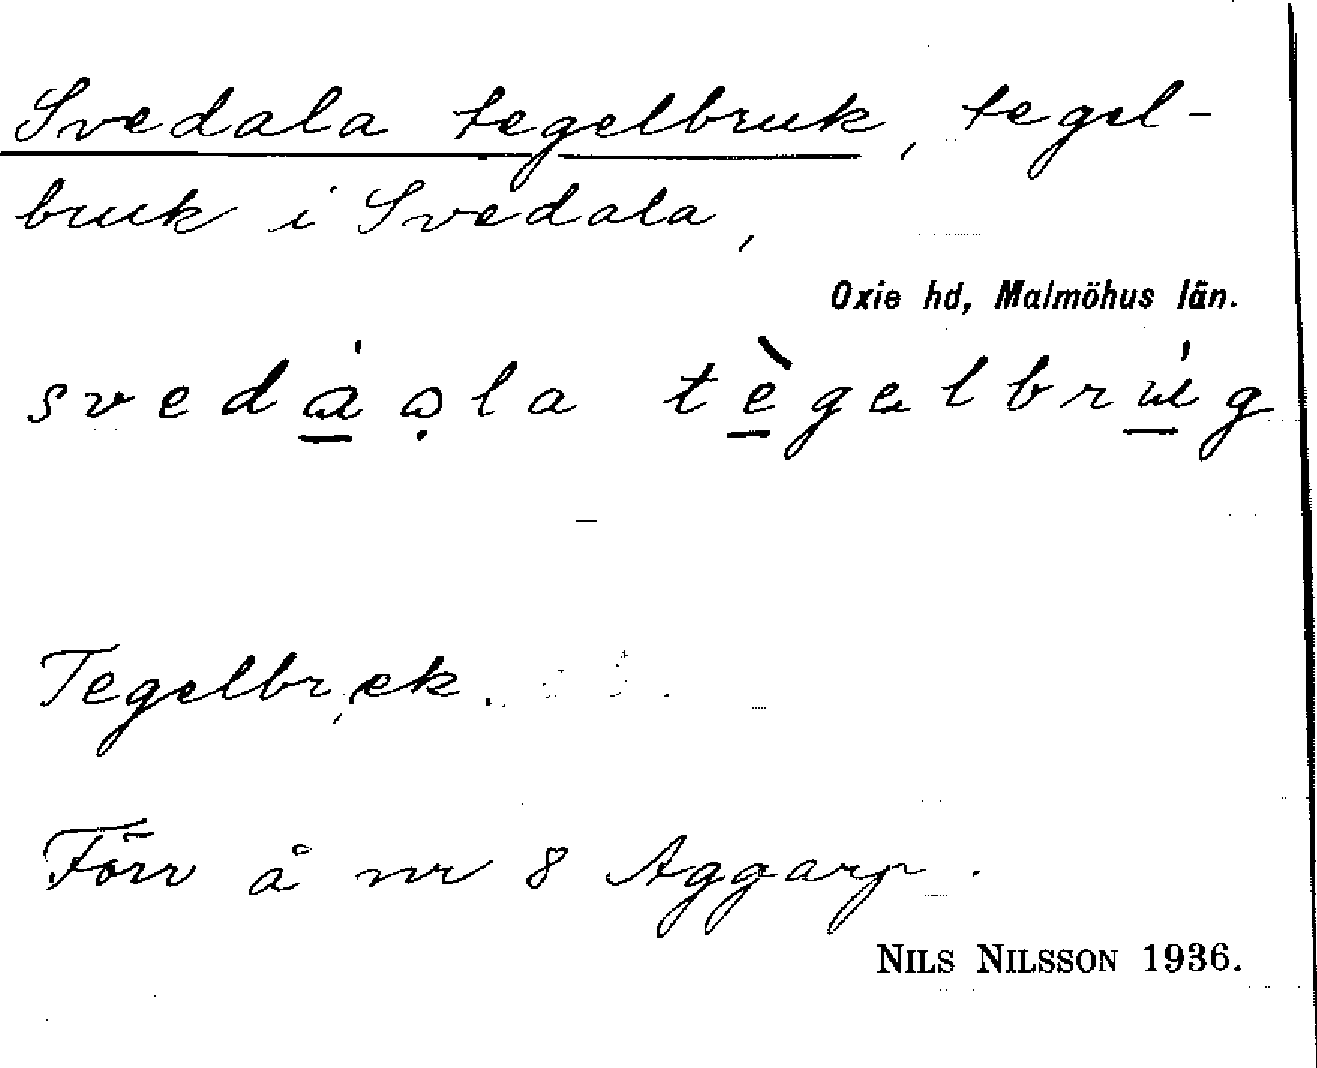 Svedala tegelbruk, tegel-
bruk i Svedala,
Oxie hd, Malmöhus län.
svedáɑ̣la tègelbrúg
Tegelbruk.
Förr å nr 8 Aggarp.
NILS NILSSON 1936.